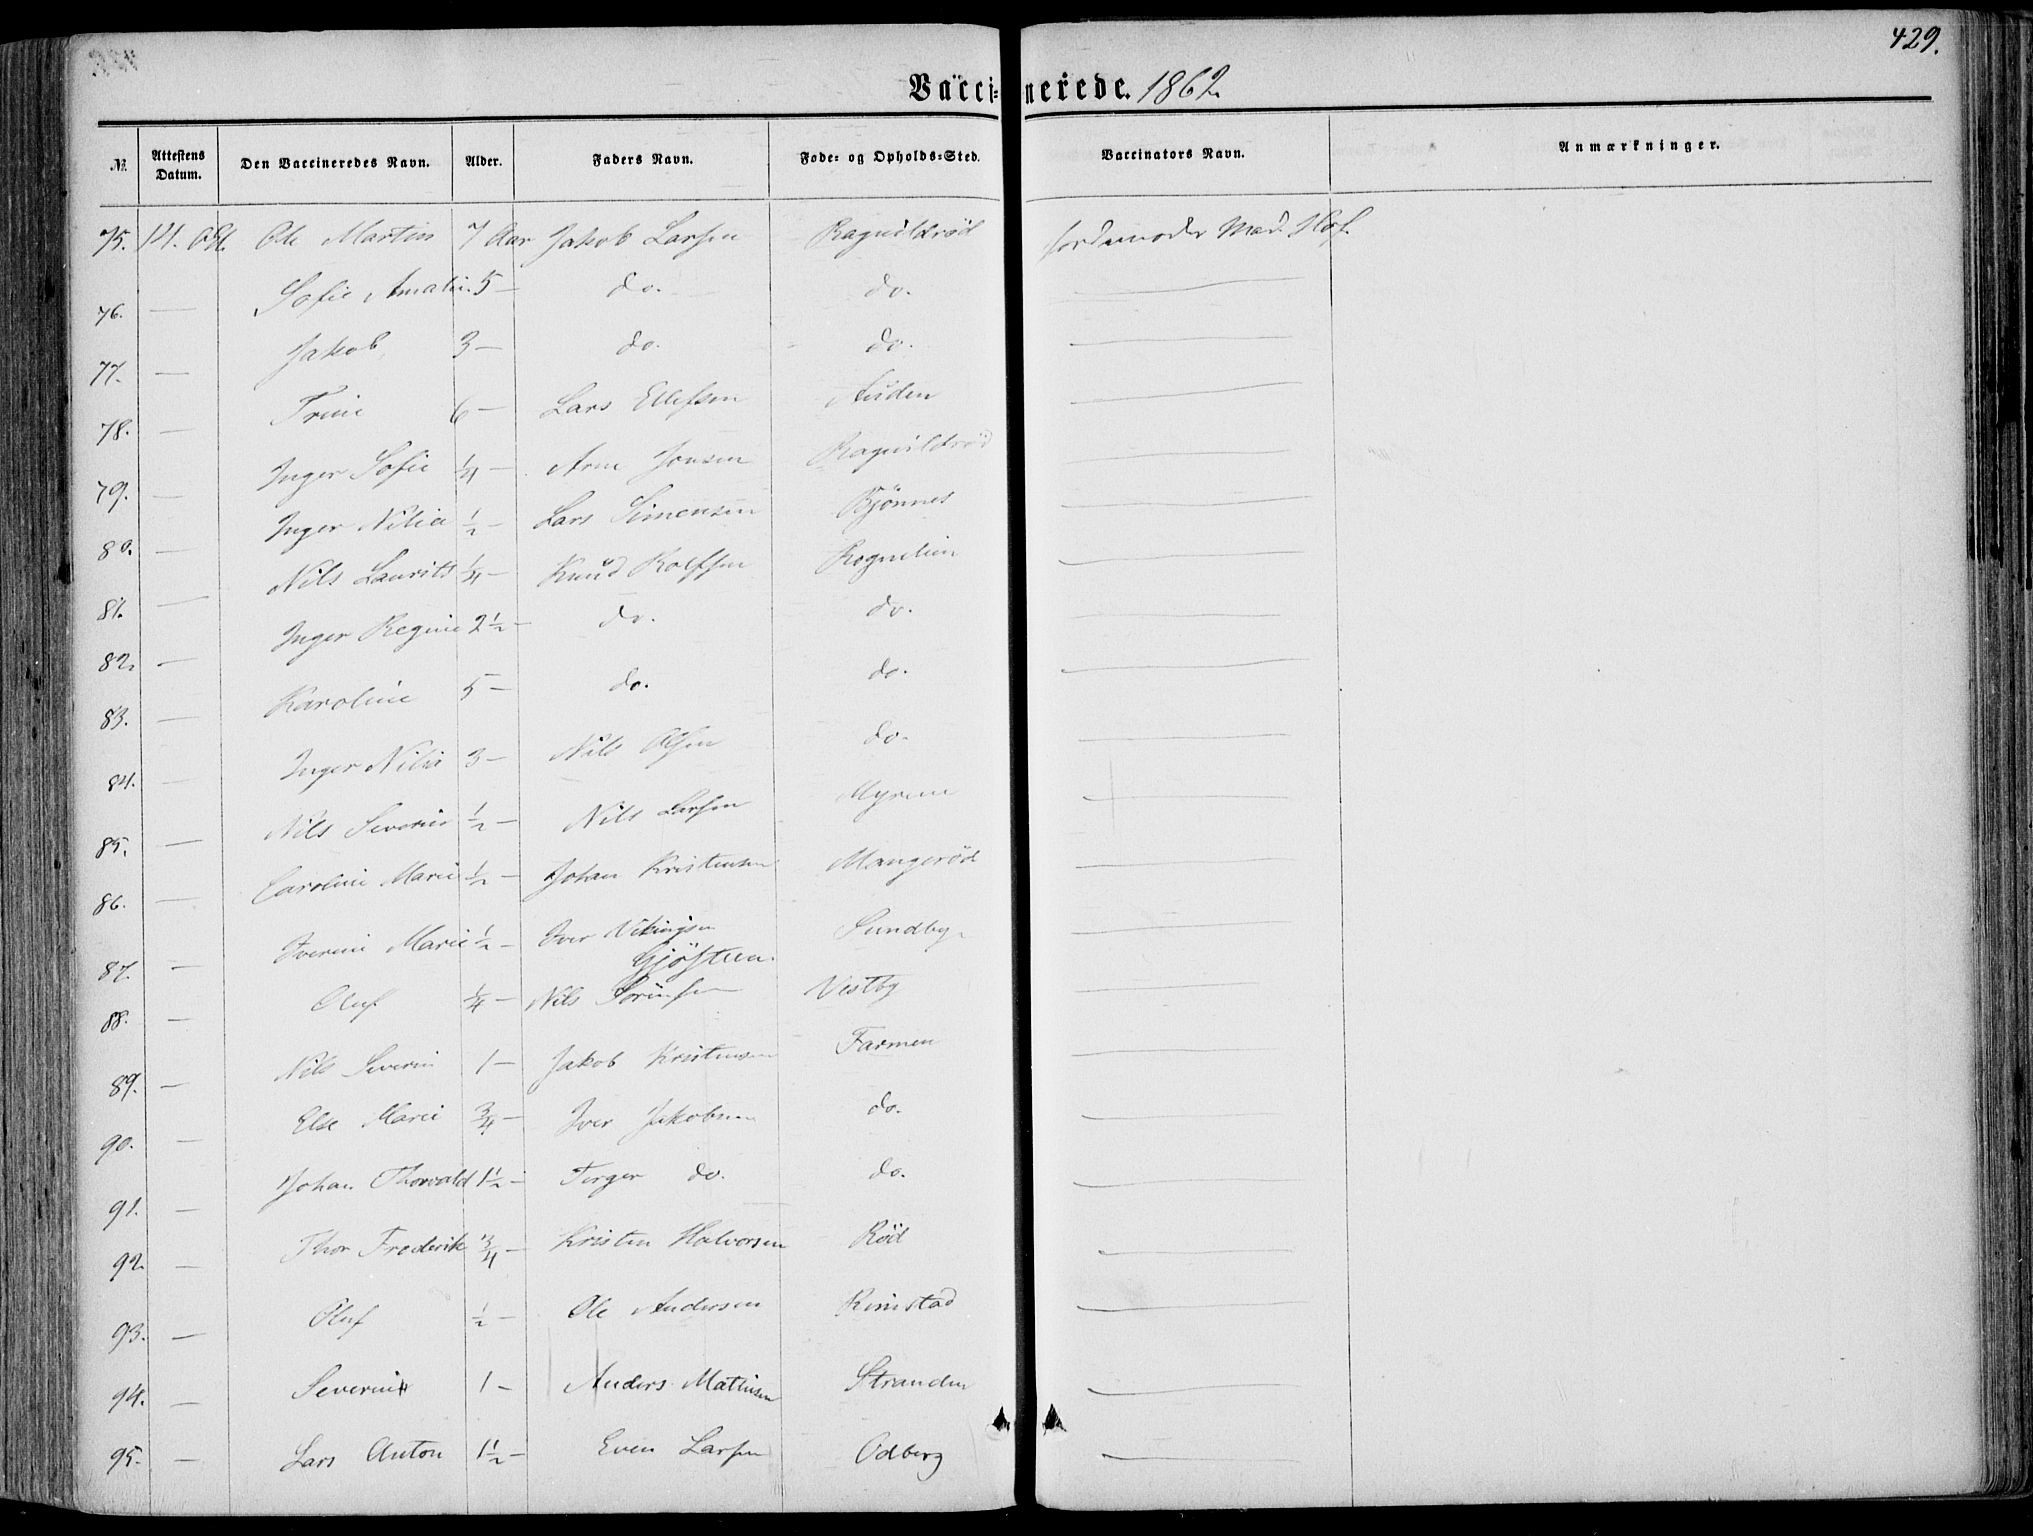 429.
Vacci=nerede. 1862
№ Attestens Datum. Den Vaccineredes Navn. Alder. Faders Navn. Føde= og Opholds=Sted. Vaccinators Navn. Anmærkninger.
75. 14. Ole Martin 7 Aar Jakob Larsen Ragnildröd Jordemoder Mad. Hof.
76. — Sofie Amalie 5 — do. do. —
77. — Jakob 3 — do. do. —
78. — Trine 6 — Lars Ellefsen Auden —
79. — Inger Sofie ¼ — Arne Jonsen Ragnildröd —
80. — Inger Nilia ½ — Lars Simensen Bjönnes —
81. — Nils Laurits ¼ — Knud Rolfsen Rognelien —
82. — Inger Regine 2½ — do. do. —
83. — Karoline 5 — do. do. —
84. — Inger Nilia 3 — Nils Olsen do. —
85. — Nils Severin ½ — Nils Larsen Myrene —
86. — Caroline Marie ½ — Johan Kristensen Mangeröd —
87. — Iverine Marie ½ — Iver Vikingsen Gjöstien. Sundby. —
88. — Oluf ¼ — Nils Sörensen Vestby —
89. — Nils Severin 1 — Jakob Kristensen Farmen —
90. — Else Marie ¾ — Iver Jakobsen do. —
91. — Johan Thorvald 1½ — Torger do. do. —
92. — Thor Frederik ¾ — Kristen Halvorsen Röd —
93. — Oluf ½ — Ole Andersen Rimstad —
94. — Severin 1 — Anders Mathisen Stranden —
95. — Lars Anton 1½ — Even Larsen Odberg —